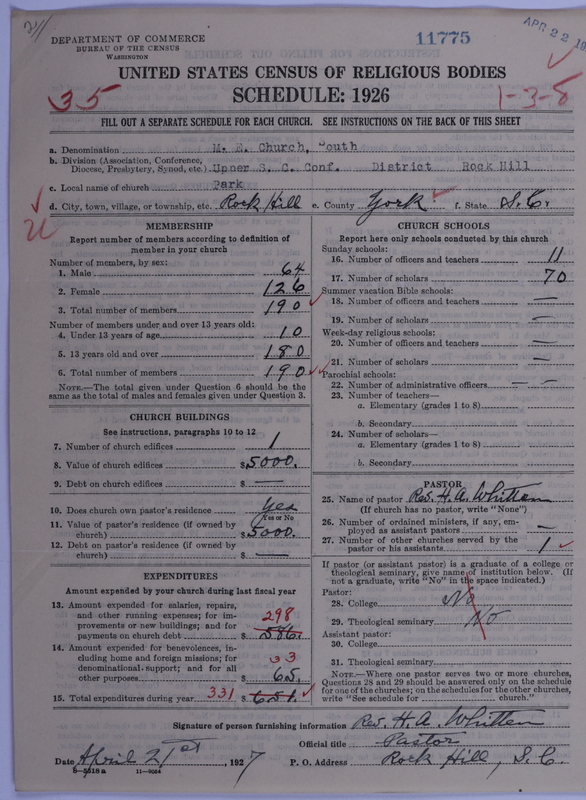 21/
DEPARTMENT OF COMMERCE
BUREAU OF THE CENSUS
WASHINGTON
11775
APR 22 19
UNITED STATES CENSUS OF RELIGIOUS BODIES
35
SCHEDULE: 1926
1-3-8
FILL OUT A SEPARATE SCHEDULE FOR EACH CHURCH. SEE INSTRUCTIONS ON THE BACK OF THIS SHEET
a. Denomination M. E. Church, South
b. Division (Association, Conference, Diocese, Presbytery, Synod, etc.) Upper S. C. Conf. District Rock Hill
c. Local name of church Park
d. City, town, village, or township, etc. Rock Hill e. County York f. State S. C.
MEMBERSHIP
Report number of members according to definition of
member in your church
Number of members, by sex:
1. Male 64
2. Female 126
3. Total number of members 190
Number of members under and over 13 years old:
4. Under 13 years of age 10
5. 13 years old and over 180
6. Total number of members 190
NOTE.—The total given under Question 6 should be the
same as the total of males and females given under Question 3.
CHURCH BUILDINGS
See instructions, paragraphs 10 to 12
7. Number of church edifices 1
8. Value of church edifices $5000.
9. Debt on church edifices $ —
10. Does church own pastor's residence Yes
(Yes or No)
11. Value of pastor's residence (if owned by
church) $5000.
12. Debt on pastor's residence (if owned by
church) $ —
EXPENDITURES
Amount expended by your church during last fiscal year
13. Amount expended for salaries, repairs,
and other running expenses; for im-
provements or new buildings; and for 298
payments on church debt $ 586.
14. Amount expended for benevolences, in-
cluding home and foreign missions; for
denominational support; and for all 33
other purposes $ 65.
15. Total expenditures during year 331 $ 651.
CHURCH SCHOOLS
Report here only schools conducted by this church
Sunday schools:
16. Number of officers and teachers 11
17. Number of scholars 70
Summer vacation Bible schools:
18. Number of officers and teachers —
19. Number of scholars —
Week-day religious schools:
20. Number of officers and teachers —
21. Number of scholars —
Parochial schools:
22. Number of administrative officers — —
23. Number of teachers—
a. Elementary (grades 1 to 8)
b. Secondary
24. Number of scholars—
a. Elementary (grades 1 to 8)
b. Secondary
PASTOR
25. Name of pastor Rev. H. A. Whitten
(If church has no pastor, write "None")
26. Number of ordained ministers, if any, em-
ployed as assistant pastors —
27. Number of other churches served by the
pastor or his assistants 1
If pastor (or assistant pastor) is a graduate of a college or
theological seminary, give name of institution below. (If
not a graduate, write "No" in the space indicated.)
Pastor:
28. College No
29. Theological seminary No
Assistant pastor:
30. College
31. Theological seminary
NOTE.—Where one pastor serves two or more churches,
Questions 28 and 29 should be answered only on the schedule
for one of the churches; on the schedules for the other churches,
write "See schedule for church."
Signature of person furnishing information Rev. H. A. Whitten
Official title Pastor
Date April 21st, 1927 P. O. Address Rock Hill, S. C.
8-5518a 11-9024